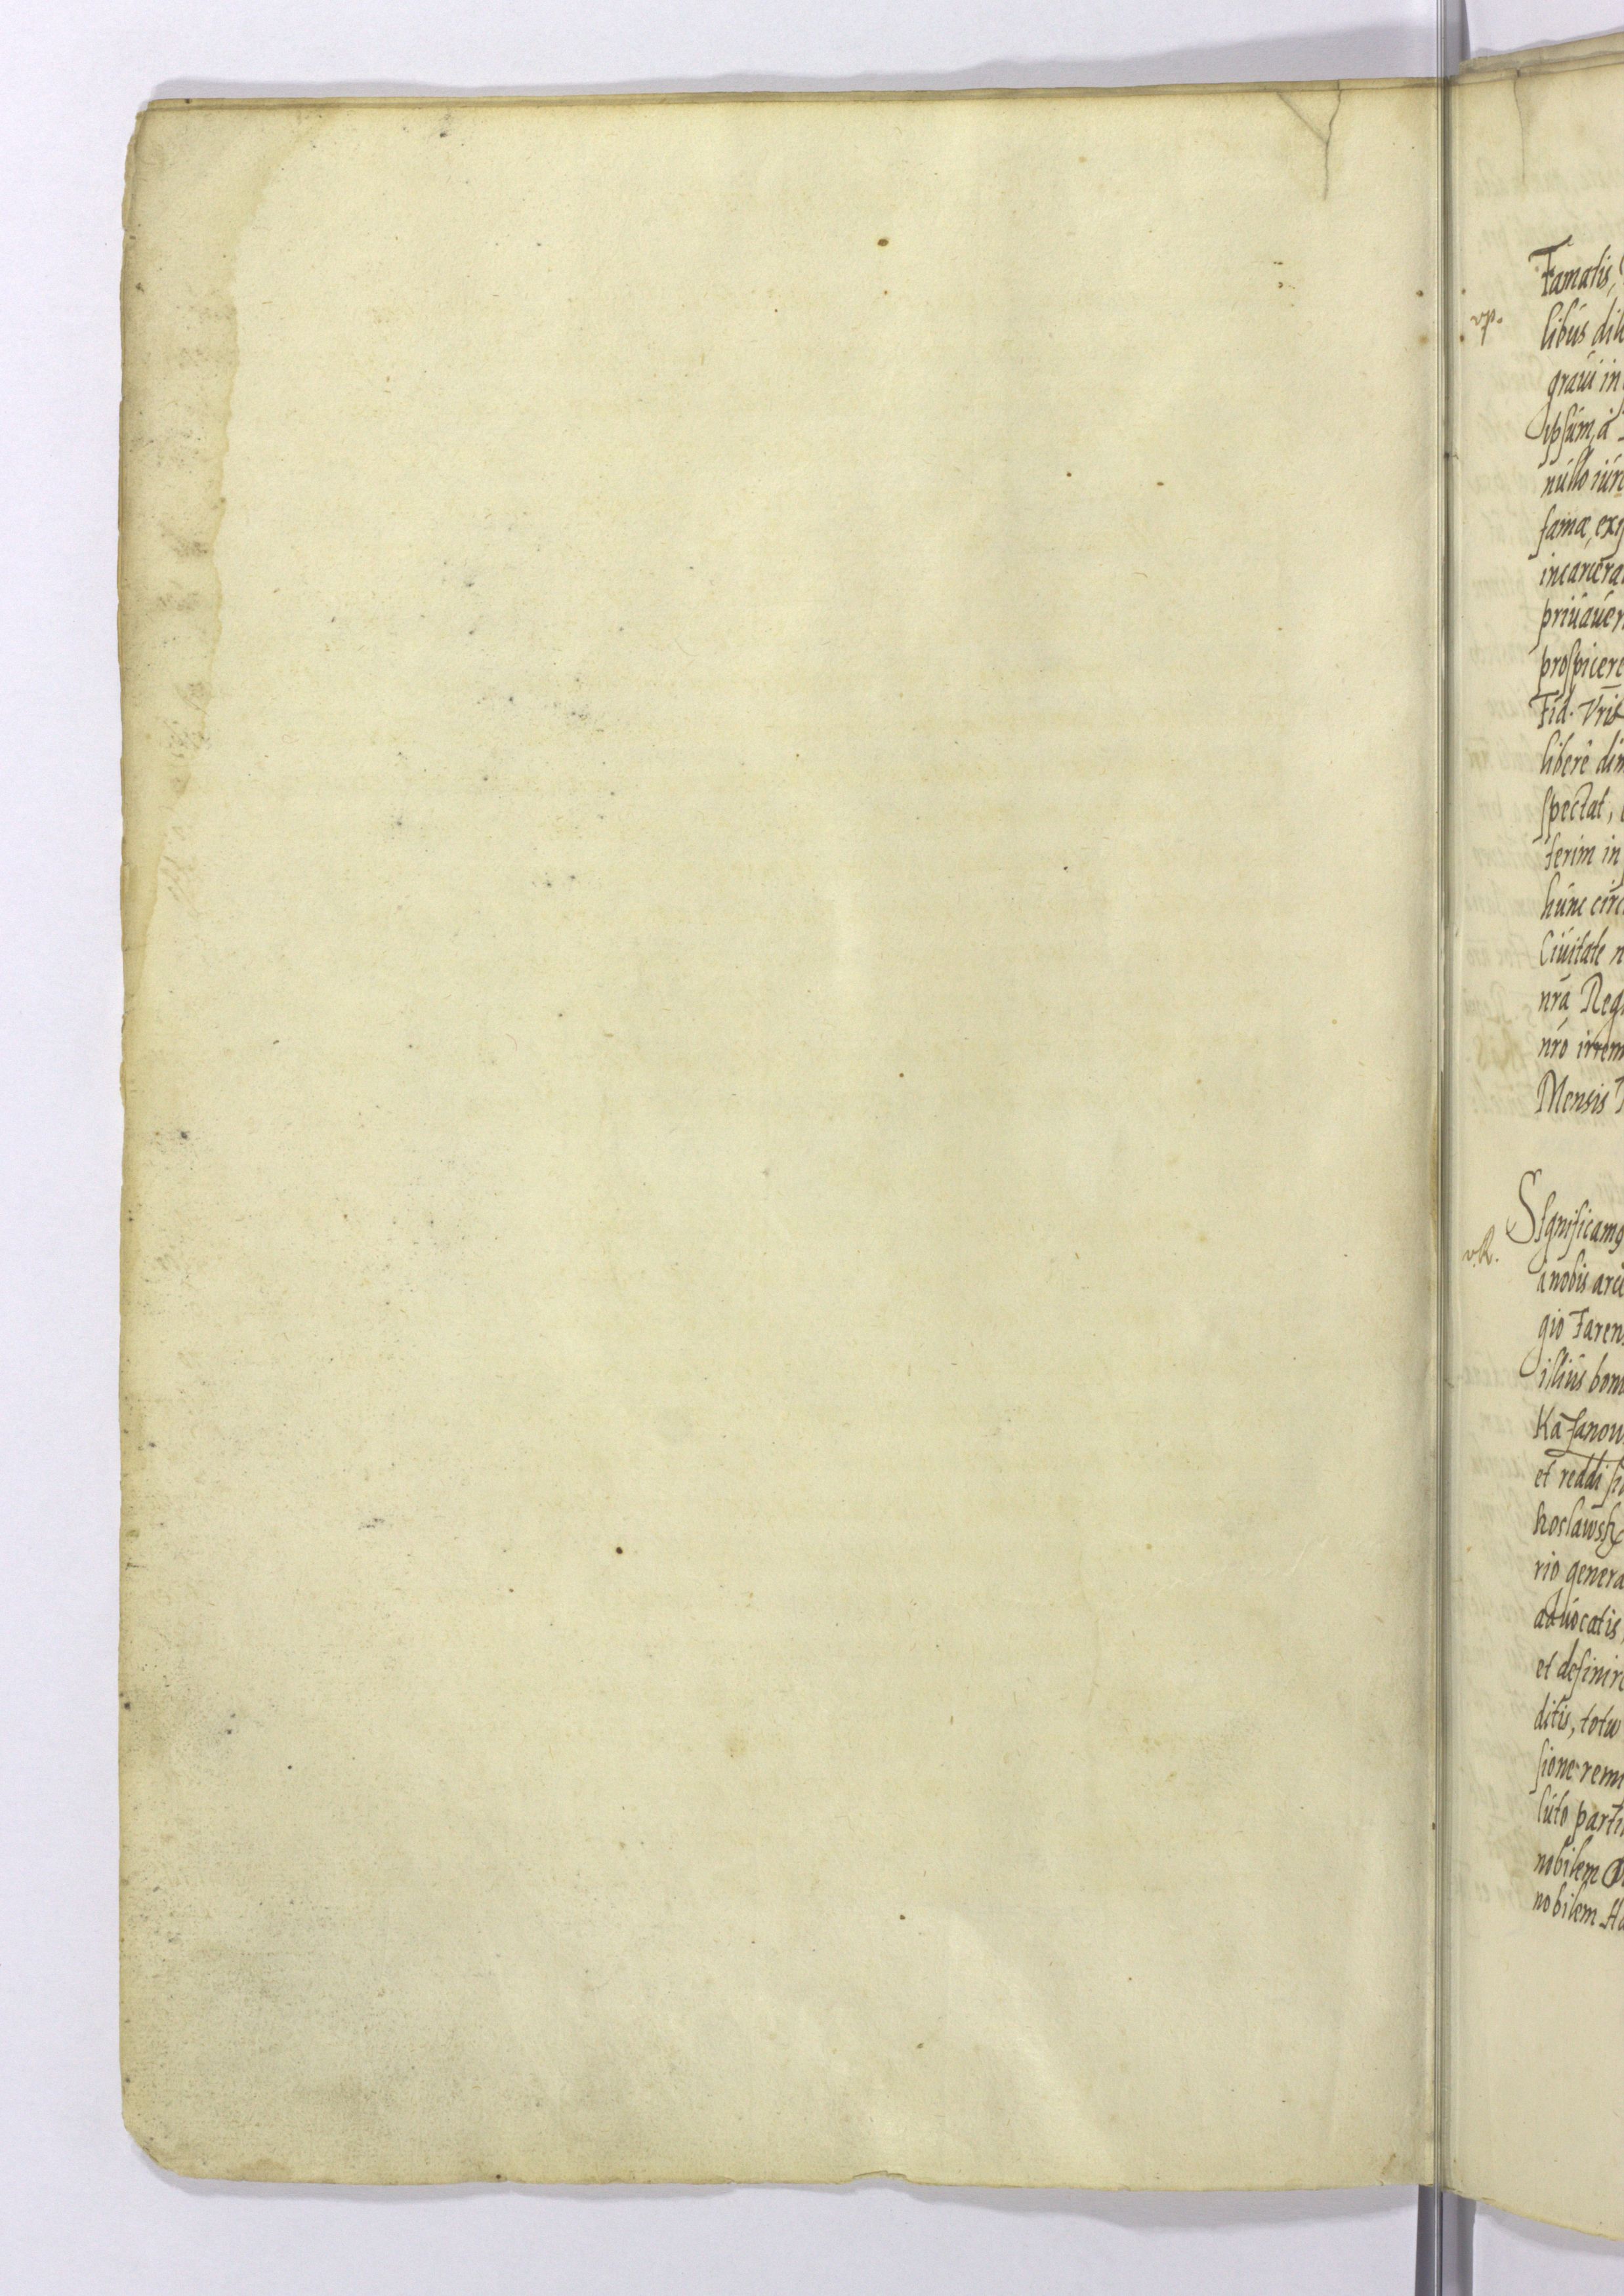 Famatis,
vp.
libus dil
graui in
ipsum, a
nullo iure
famæ, ex
incarcera
priuauer
prospicere
Fid. Vris
libere dim
spectat,
terim in
hunc circ
Ciuitate n
nra Reg
nro irrem
Mensis
Significamq
v.R.
a nobis arce
gio Faren
illius bon
Kazanow
et reddi
hoslawsk
rio genera
aduocatis,
et definire
ditis, totu
sione remi
luto parti
nobilem
nobilem Ha